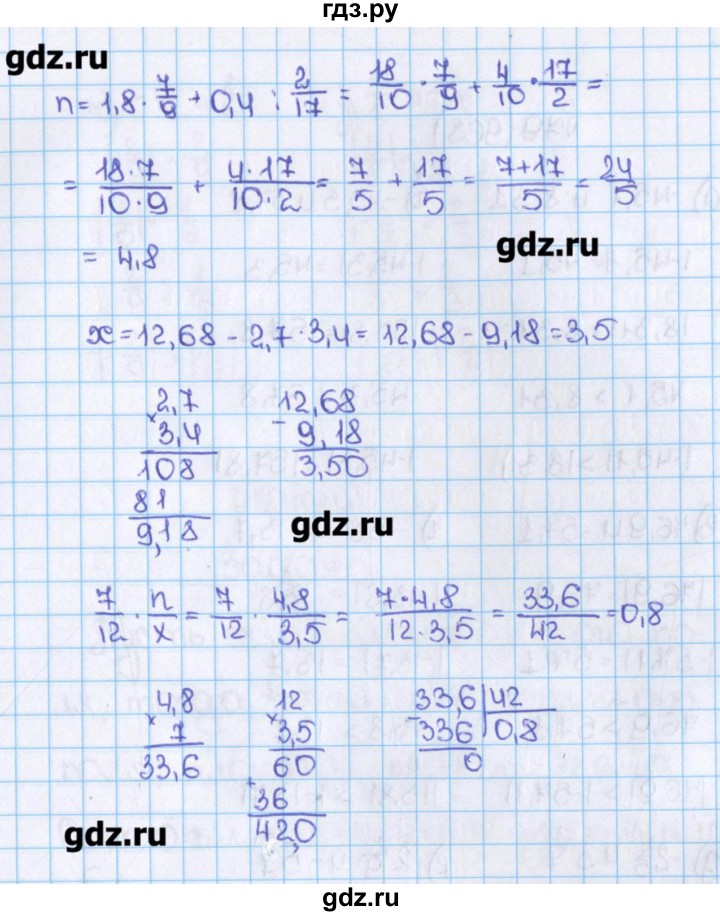 гдз.ру
gdz.ru
n = 1,8 · 7/9 + 0,4 : 2/17 = 18/10 · 7/9 + 4/10 · 17/2 =
= 18·7/10·9 + 4·17/10·2 = 7/5 + 17/5 = 7+17/5 = 24/5
gdz.ru
= 4,8
x = 12,68 - 2,7 · 3,4 = 12,68 - 9,18 = 3,5
2,7 12,68
× 3,4 - 9,18
108 3,50
81
9,18
gdz.ru
7/12 · n/x = 7/12 · 4,8/3,5 = 7·4,8/12·3,5 = 33,6/42 = 0,8
4,8 12 33,6 | 42
× 7 × 3,5 - 336 0,8
33,6 60 0
+ 36
42,0
gdz.ru
gdz.ru